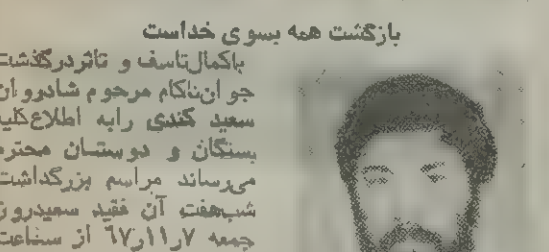 بازگشت همه بسوی خداست
باکمال‌تاسف و تاثردرگذشت
جوان‌ناکام مرحوم شادروان
سعید کندی رابه اطلاع‌کلیه
بستگان و دوستان محترم
می‌رساند مراسم بزرگداشت
شب‌هفت آن فقید سعیدروز
جمعه ۷ر۱۱ر۶۷ از ساعت